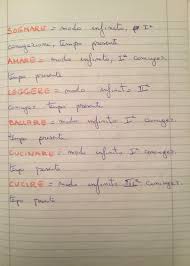 SOGNARE = modo infinito, Iª
coniugazione, tempo presente
AMARE = modo infinito, Iª coniugaz.
tempo presente
LEGGERE = modo infinito IIª
coniugaz. tempo presente
BALLARE = modo infinito Iª coniugaz.
tempo presente
CUCINARE = modo infinito Iª coniugaz.
tempo presente
CUCIRE = modo infinito IIIª coniugaz.
tempo presente